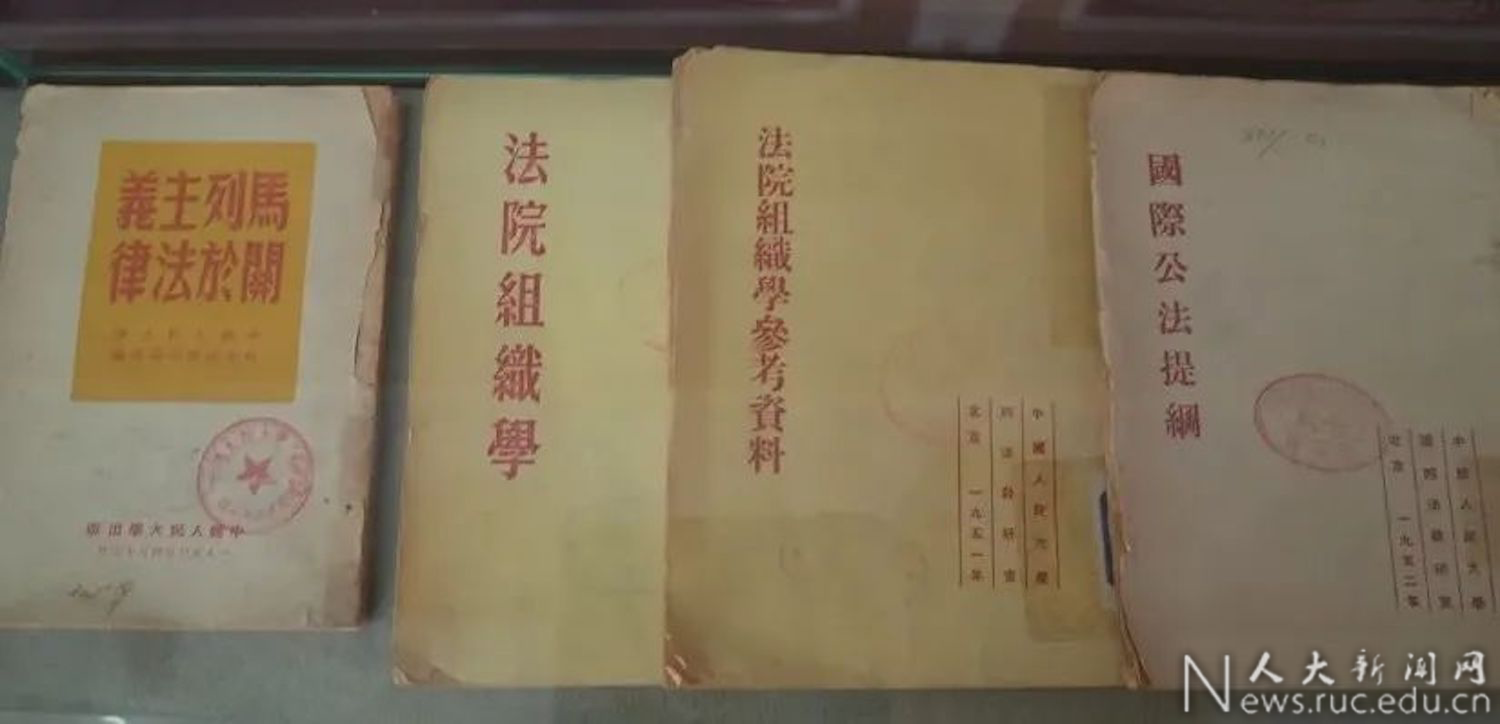 馬列主義
關於法律
中國人民大學出版
法院組織學
法院組織學參考資料
中國人民大學
北京 一九五一年
國際公法提綱
中國人民大學
北京 一九五二年
人大新闻网
News.ruc.edu.cn